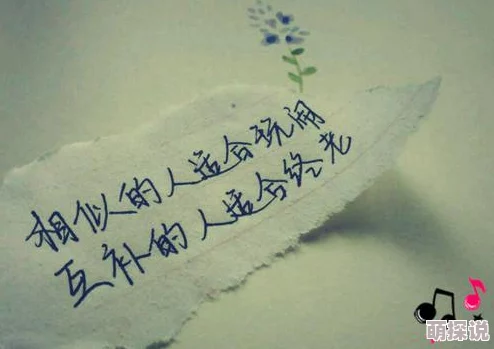 相似的人适合玩闹
互补的人适合终老
萌探说